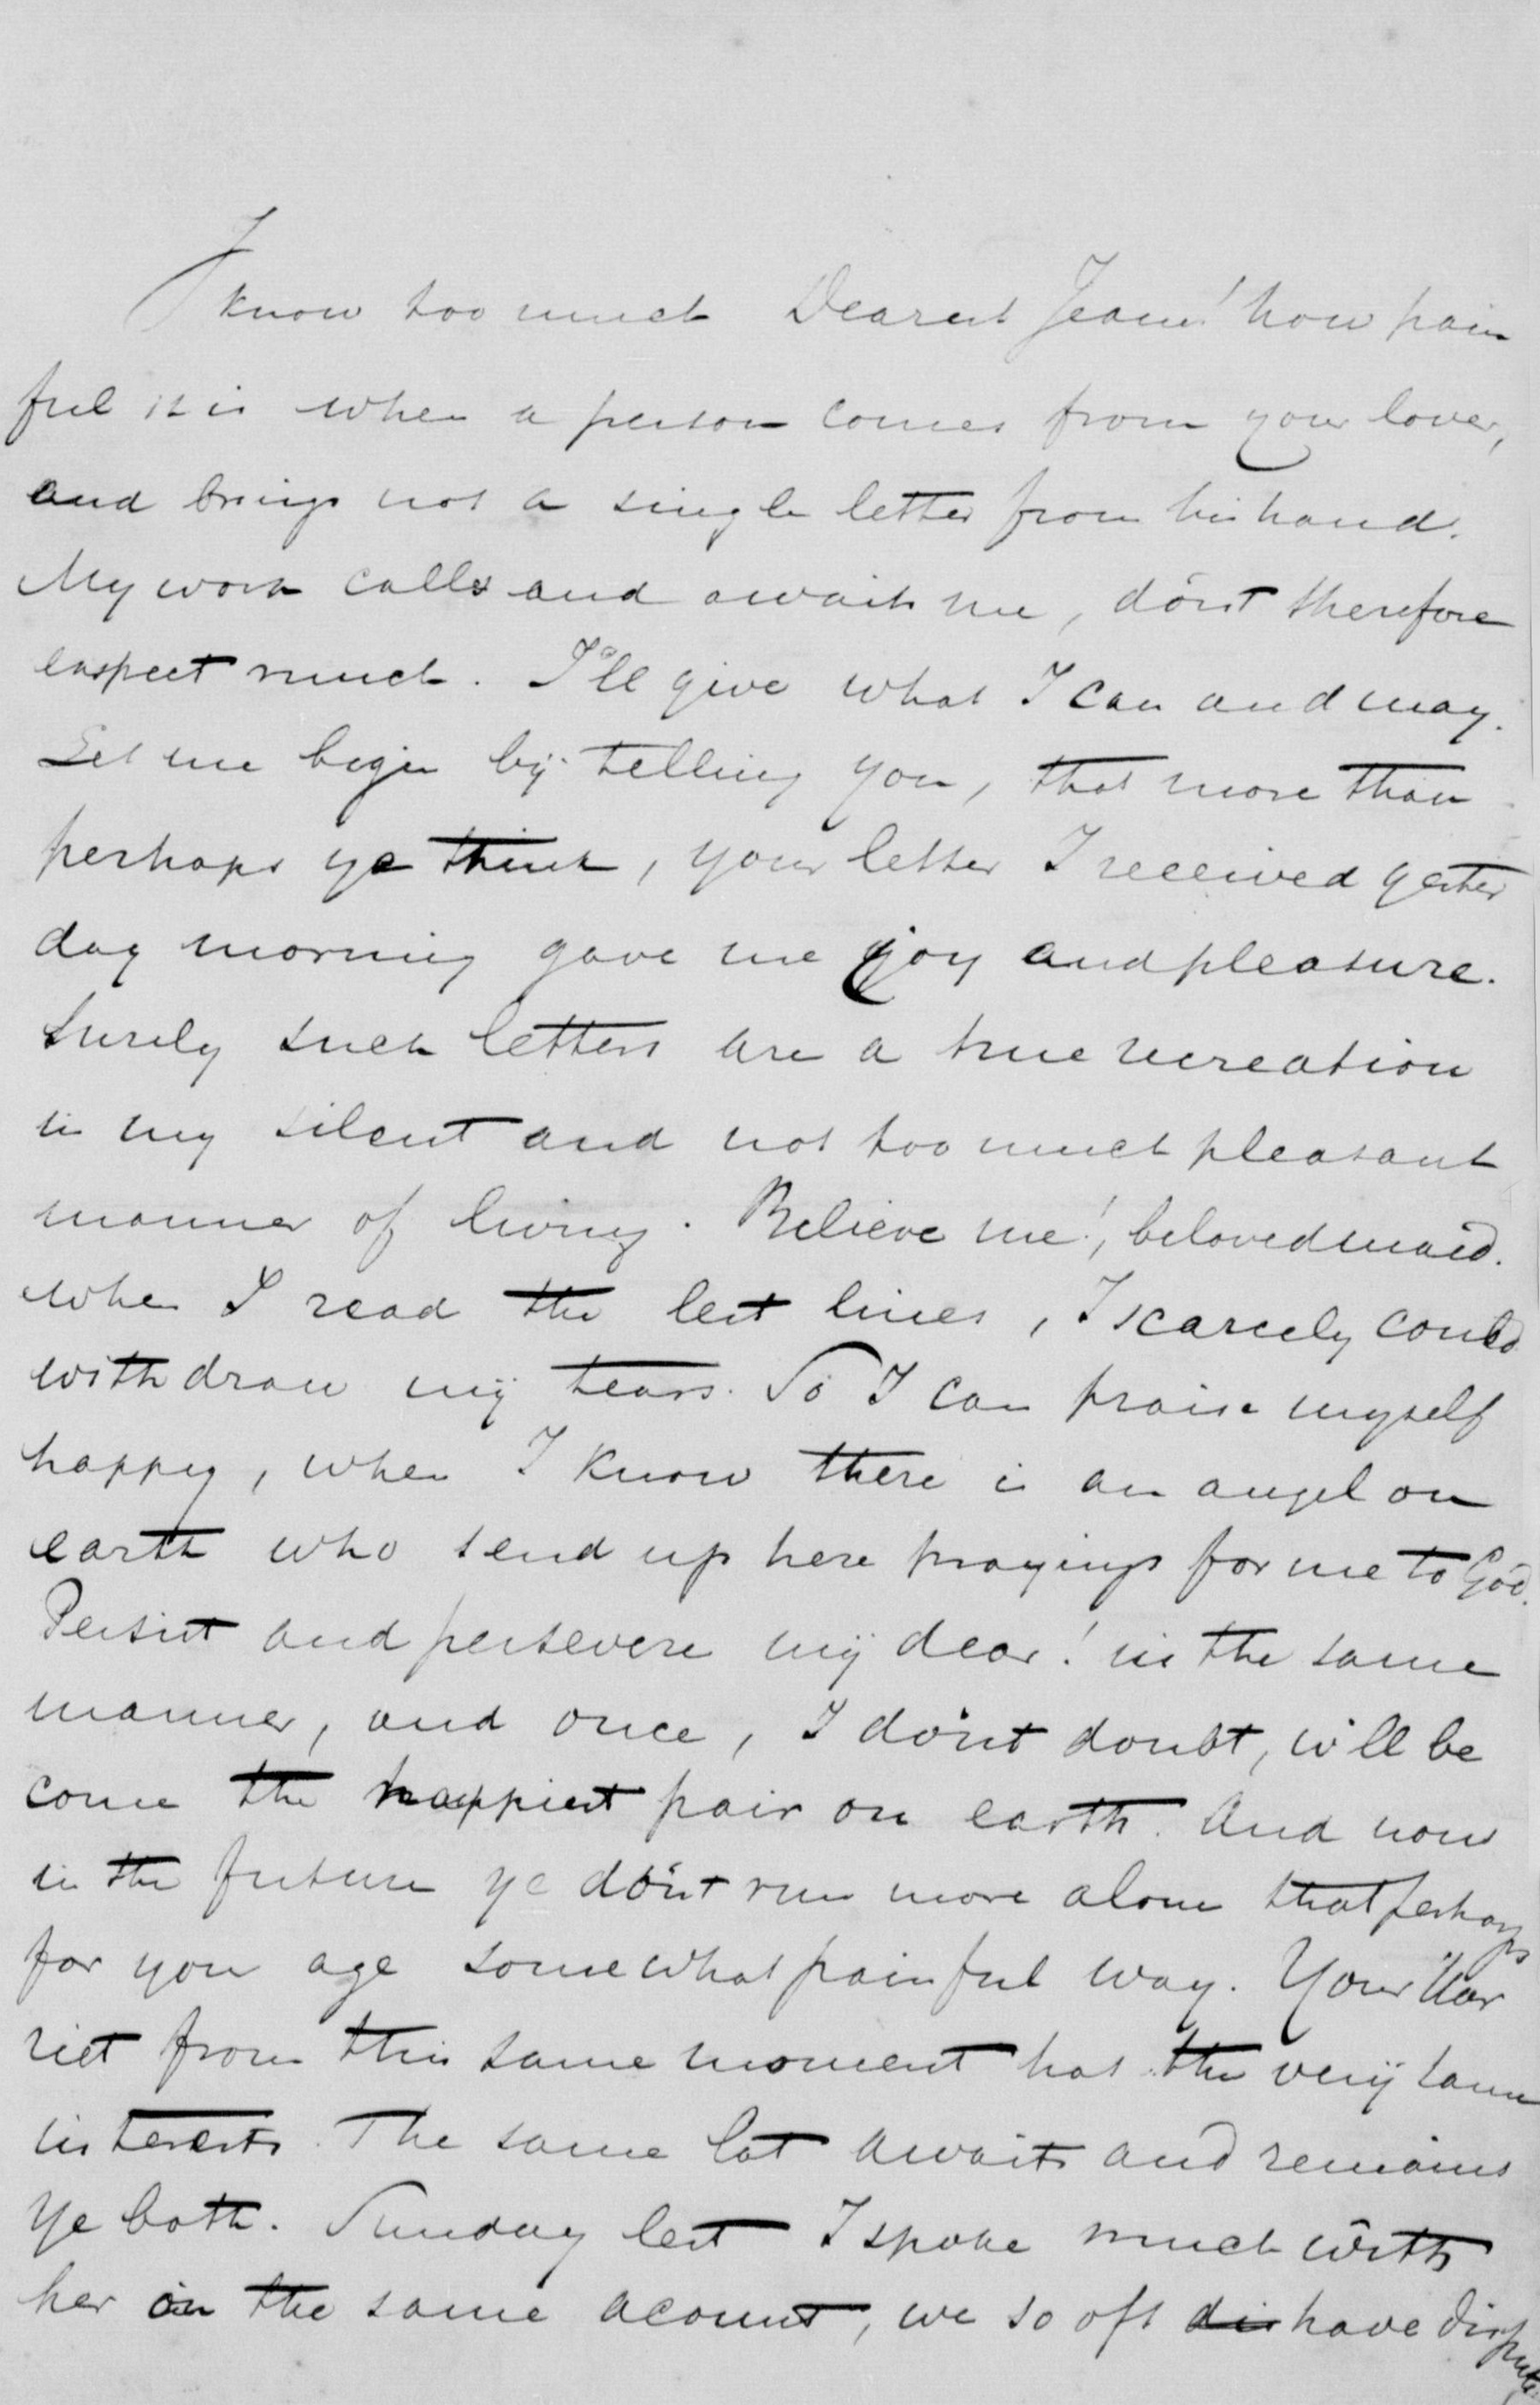 I know too much Dearest Jeane! how pain
ful it is when a person comes from your lover,
and brings not a single letter from his hand.
My work calls and awaits me, dón't therefore
exspect much. I'll give what I can and may.
Let me begin bÿ telling you, that more than
perhaps ye think, your letter I received yester
day morning gave me joy and pleasure.
Surely such letters are a true recreation
in my silent and not too much pleasant
manner of living. Believe me!, beloved maid.
when I read the lest lines, I scarcely could
withdraw mÿ tears. So I can praise myself
happy, when I know there is an angel on
earth who send up here prayings for me to God.
Persist and persevere mÿ dear! in the same
manner, and once, I dón't doubt, w'll be
come the happiest pair on earth. And now
in the future ye dón't run more alone that perhaps
for you age somewhat painful way. Your Har
riet from this same moment has the verÿ same
interests. The same lot awaits and remains
Ye both. Sunday lest I spoke much with
her on the same acount, we so oft dis have disput